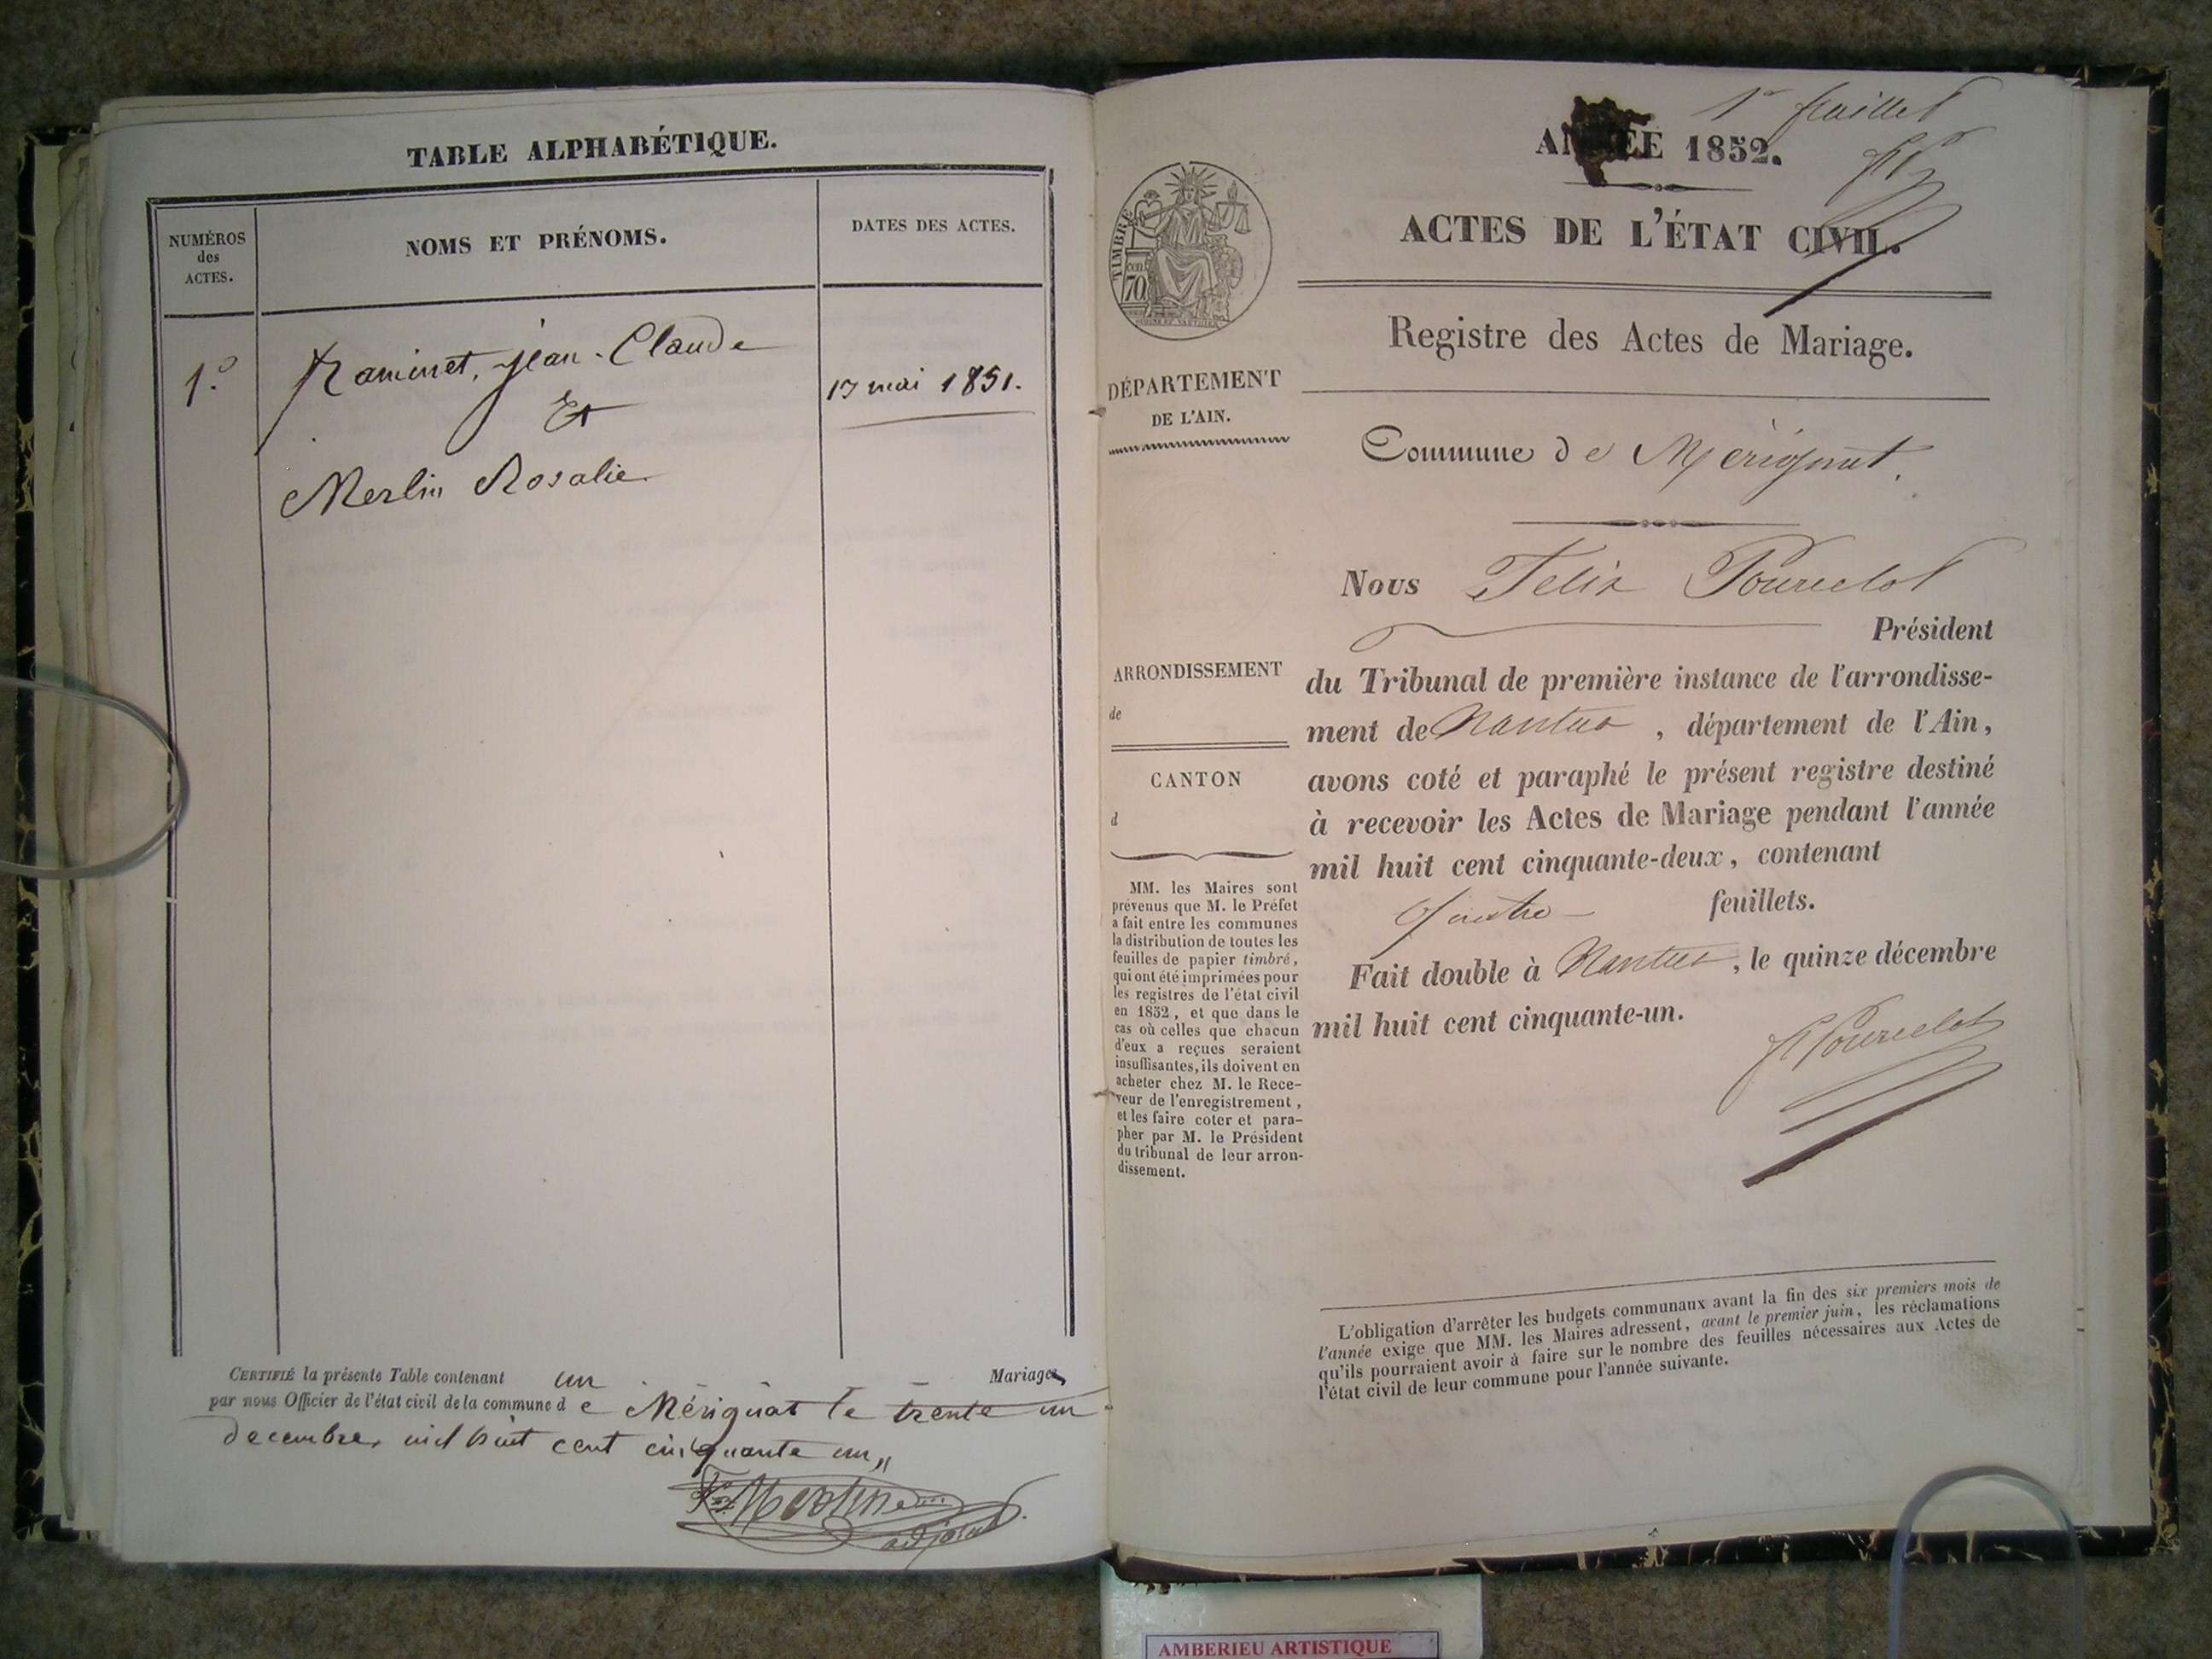 TABLE ALPHABÉTIQUE.
NUMÉROS
des
ACTES.
NOMS ET PRÉNOMS.
DATES DES ACTES.
1.º
Raminet, Jean-Claude
Et
Merlin Rosalie
17 mai 1851.
CERTIFIÉ la présente Table contenant un Mariages
par nous Officier de l'état civil de la commune de Mérignat le trente un
decembre, mil huit cent cinquante un
Merlin
adjoint
1er feuillet
ANNÉE 1852.
ACTES DE L'ÉTAT CIVIL.
TIMBRE
70
Registre des Actes de Mariage.
DÉPARTEMENT
DE L'AIN.
Commune de Mérignat.
Nous Felix Pourcelot
Président
ARRONDISSEMENT
de
CANTON
d
du Tribunal de première instance de l'arrondisse-
ment de Nantua, département de l'Ain,
avons coté et paraphé le présent registre destiné
à recevoir les Actes de Mariage pendant l'année
mil huit cent cinquante-deux, contenant
Quatre feuillets.
Fait double à Nantua, le quinze décembre
mil huit cent cinquante-un.
Pourcelot
MM. les Maires sont
prévenus que M. le Préfet
a fait entre les communes
la distribution de toutes les
feuilles de papier timbré,
qui ont été imprimées pour
les registres de l'état civil
en 1852, et que dans le
cas où celles que chacun
d'eux a reçues seraient
insuffisantes, ils doivent en
acheter chez M. le Rece-
veur de l'enregistrement,
et les faire coter et para-
pher par M. le Président
du tribunal de leur arron-
dissement.
L'obligation d'arrêter les budgets communaux avant la fin des six premiers mois de
l'année exige que MM. les Maires adressent, avant le premier juin, les réclamations
qu'ils pourraient avoir à faire sur le nombre des feuilles nécessaires aux Actes de
l'état civil de leur commune pour l'année suivante.
AMBERIEU ARTISTIQUE